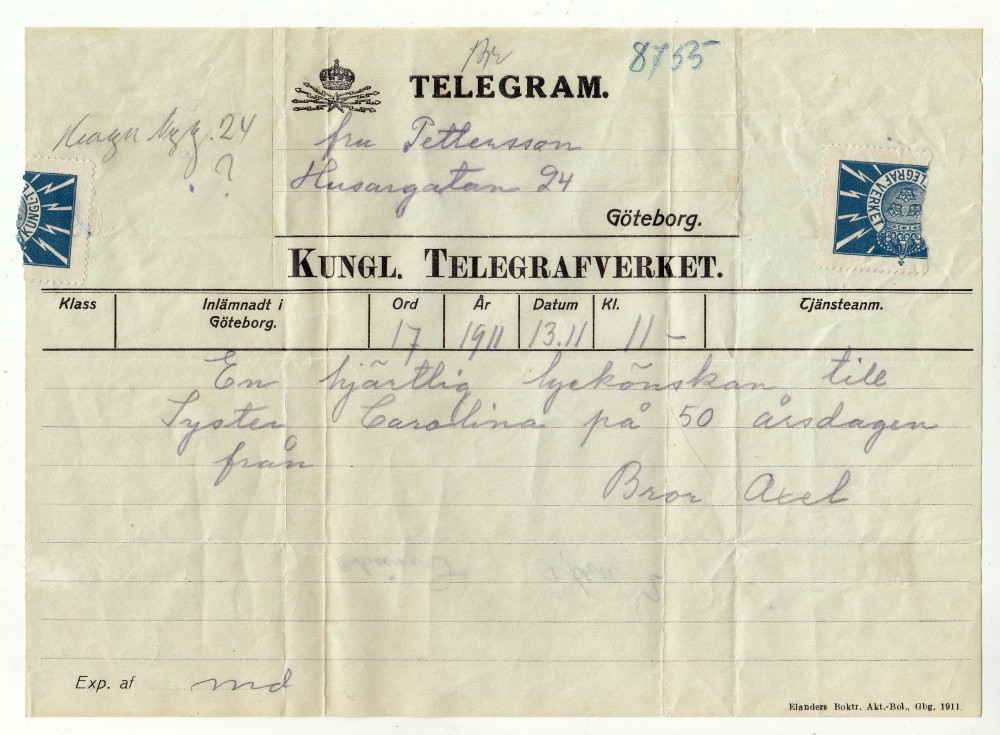 8755
TELEGRAM.
fru Pettersson
24
?
Husargatan 24
Göteborg.
KUNGL. TELEGRAFVERKET.
KUNGL. TE
TELEGRAFVERKET
Klass Inlämnadt i Göteborg. Ord År Datum Kl. Tjänsteanm.
17 1911 13.11 11 –
En hjärtlig lyckönskan till
Syster Carolina på 50 årsdagen
från
Bror Axel
Exp. af md
Elanders Boktr. Akt.-Bol., Gbg, 1911.